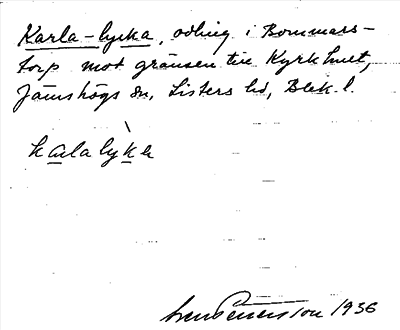 Karla-lycka, odling i Bommars-
torp mot gränsen till Kyrkhult,
Jämshögs sn, Listers hd, Blek. l.
karlalyka
Pettersson 1936